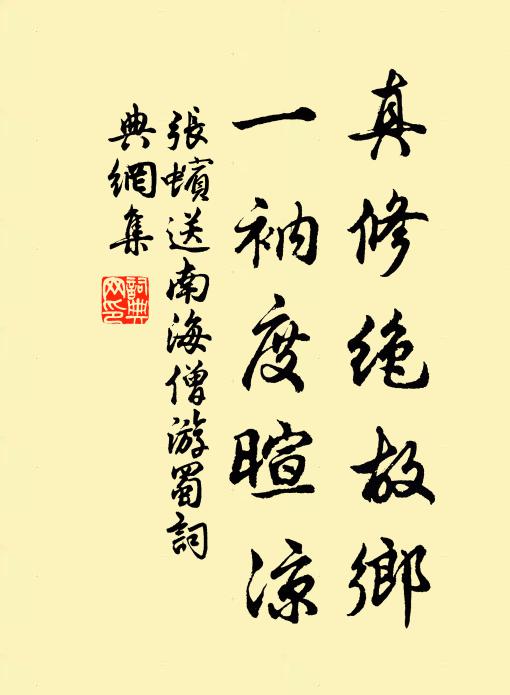 真修絶故鄉
一衲度暄涼
張蠙送南海僧游蜀詞
典網集
詞典
网印